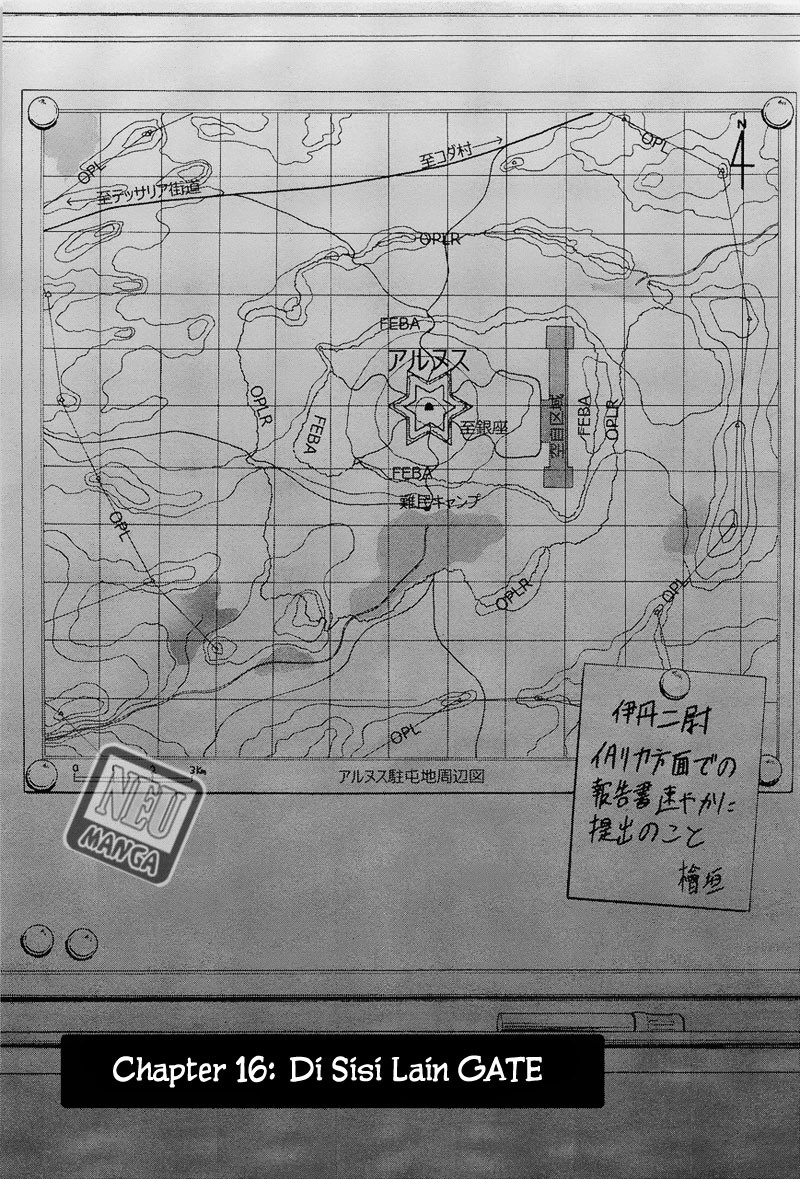 N
OPL
至コダ村→
OPL
←至テッサリア街道
OPLR
FEBA
アルヌス
OPLR
FEBA
至銀座
空自区域
FEBA
OPLR
FEBA
難民キャンプ
OPL
OPLR
OPL
OPL
0 3Km
アルヌス駐屯地周辺図
伊丹二尉
イタリカ方面での
報告書速やかに
提出のこと
檜垣
NEU
MANGA
Chapter 16: Di Sisi Lain GATE